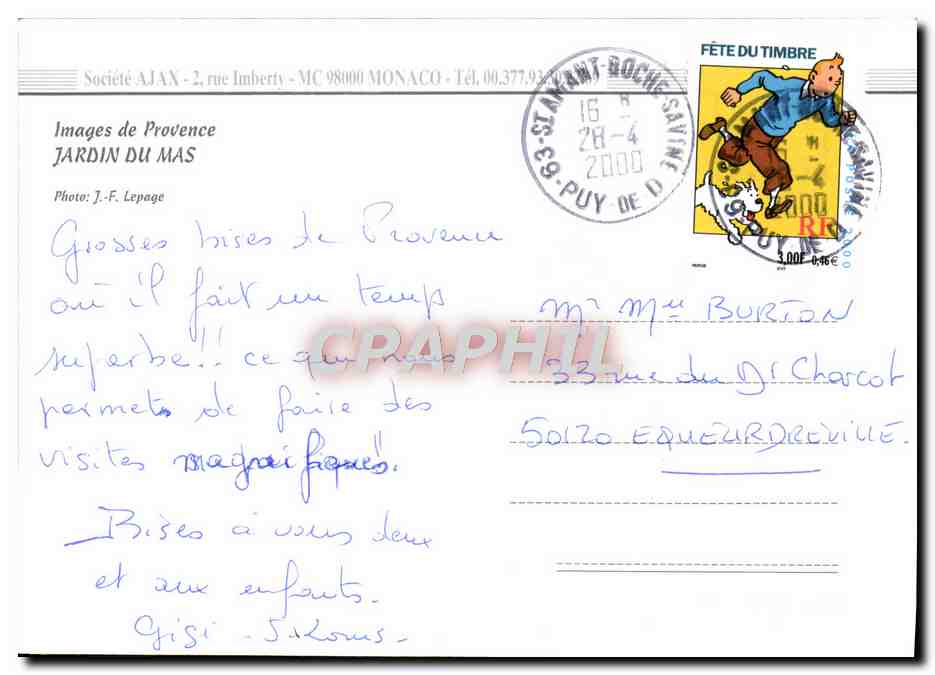 Société AJAX - 2, rue Imberty - MC 98000 MONACO - Tél. 00.377.93
Images de Provence
JARDIN DU MAS
Photo: J.-F. Lepage
63-ST AMANT-ROCHE-SAVINE
16 H
28-4
2000
PUY-DE-D
FÊTE DU TIMBRE
LA POSTE 2000
RF
3,00F 0,46€
Grosses bises de Provence
où il fait un temps
superbe!! ce qui nous
permet de faire des
visites magnifiques.
Bises à vous deux
et aux enfants.
Gigi - J. Louis -
Mr Mme BURTON
33 rue du Dr Charcot
50120 EQUEURDREVILLE.
CPAPHIL